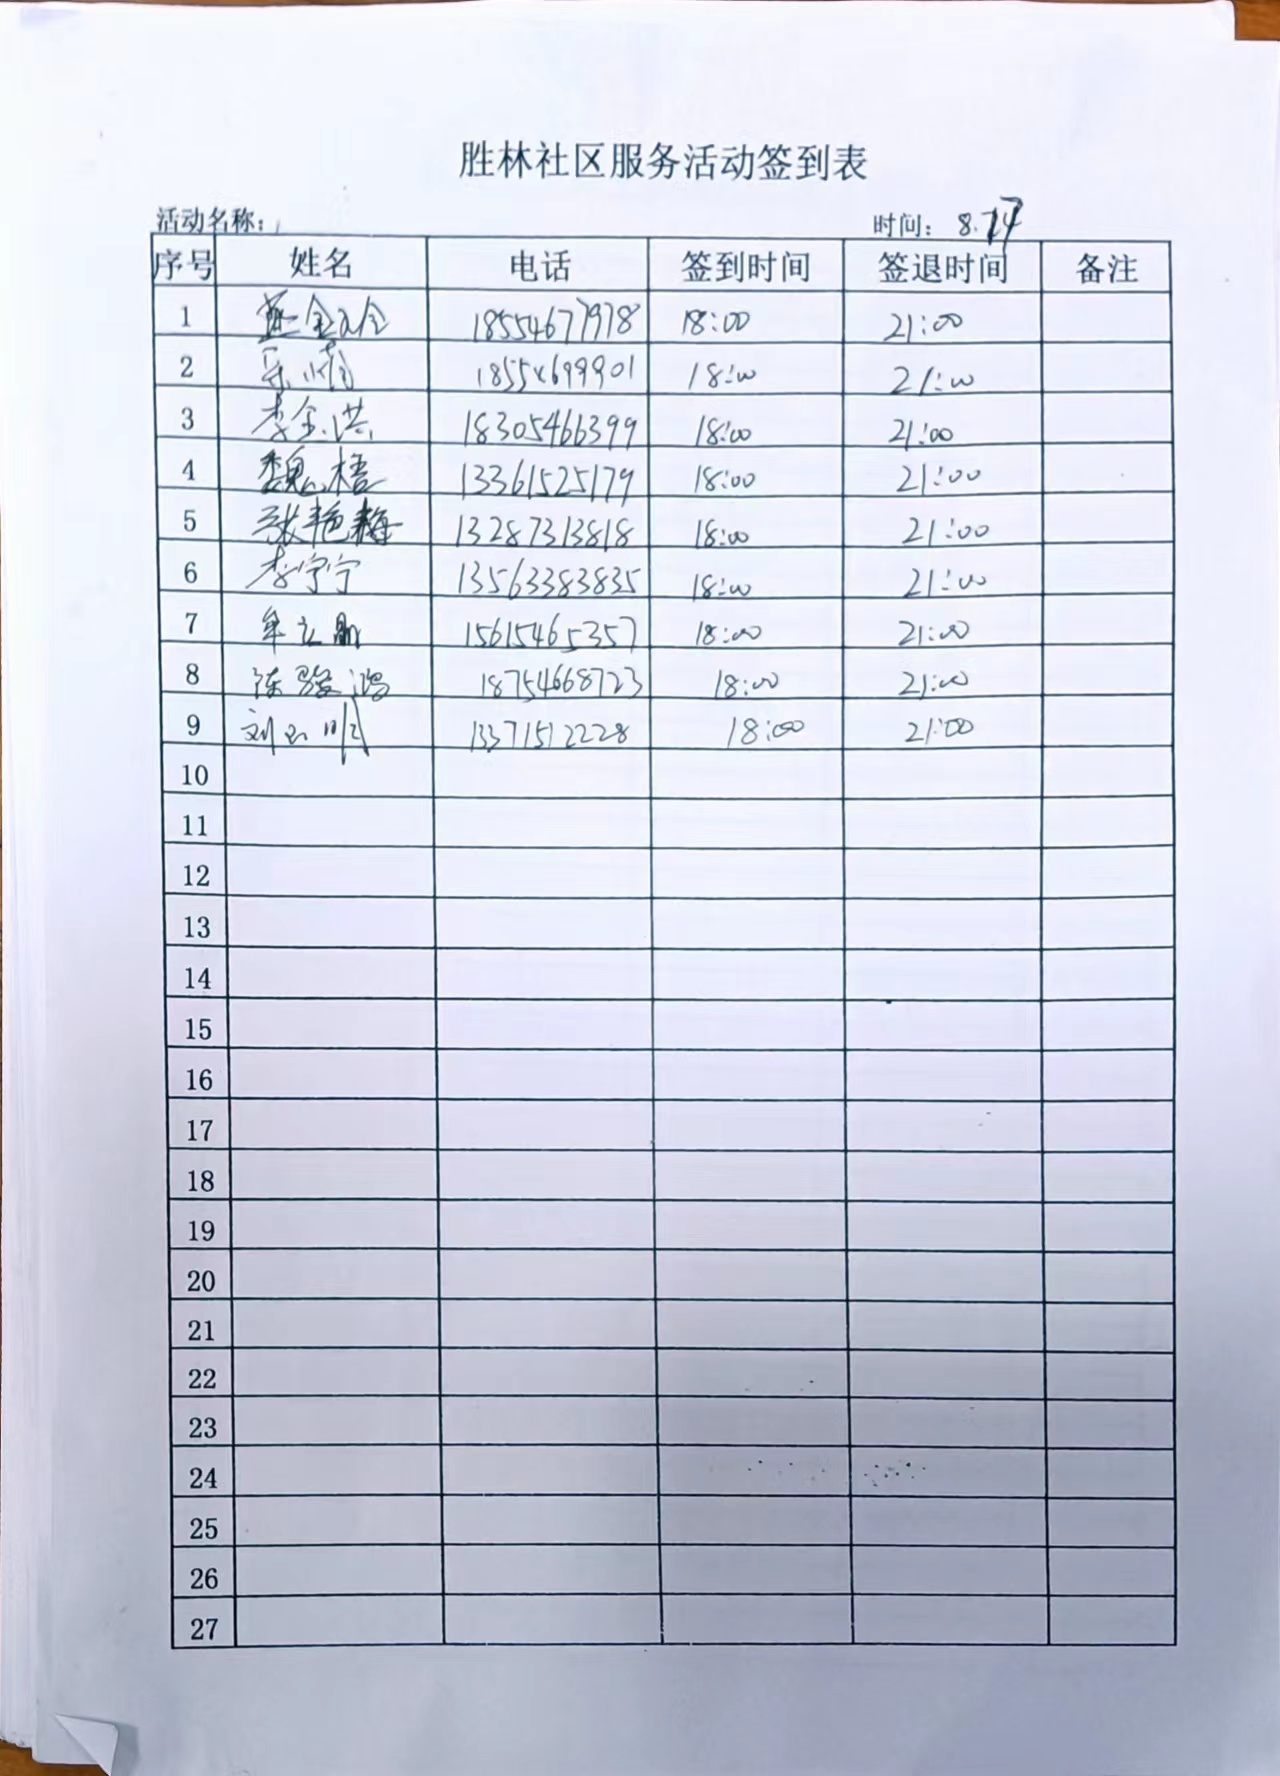 胜林社区服务活动签到表
活动名称: 时间: 8.
序号 姓名 电话 签到时间 签退时间 备注
1 18554677978 18:00 21:00
2 18554699901 18:00 21:00
3 李金洪 18305466399 18:00 21:00
4 魏梧 13361525179 18:00 21:00
5 张艳梅 13287313818 18:00 21:00
6 李宁宁 13563383835 18:00 21:00
7 牟立 15615465357 18:00 21:00
8 陈骏鸿 18754668723 18:00 21:00
9 刘玉明 13371512228 18:00 21:00
10
11
12
13
14
15
16
17
18
19
20
21
22
23
24
25
26
27